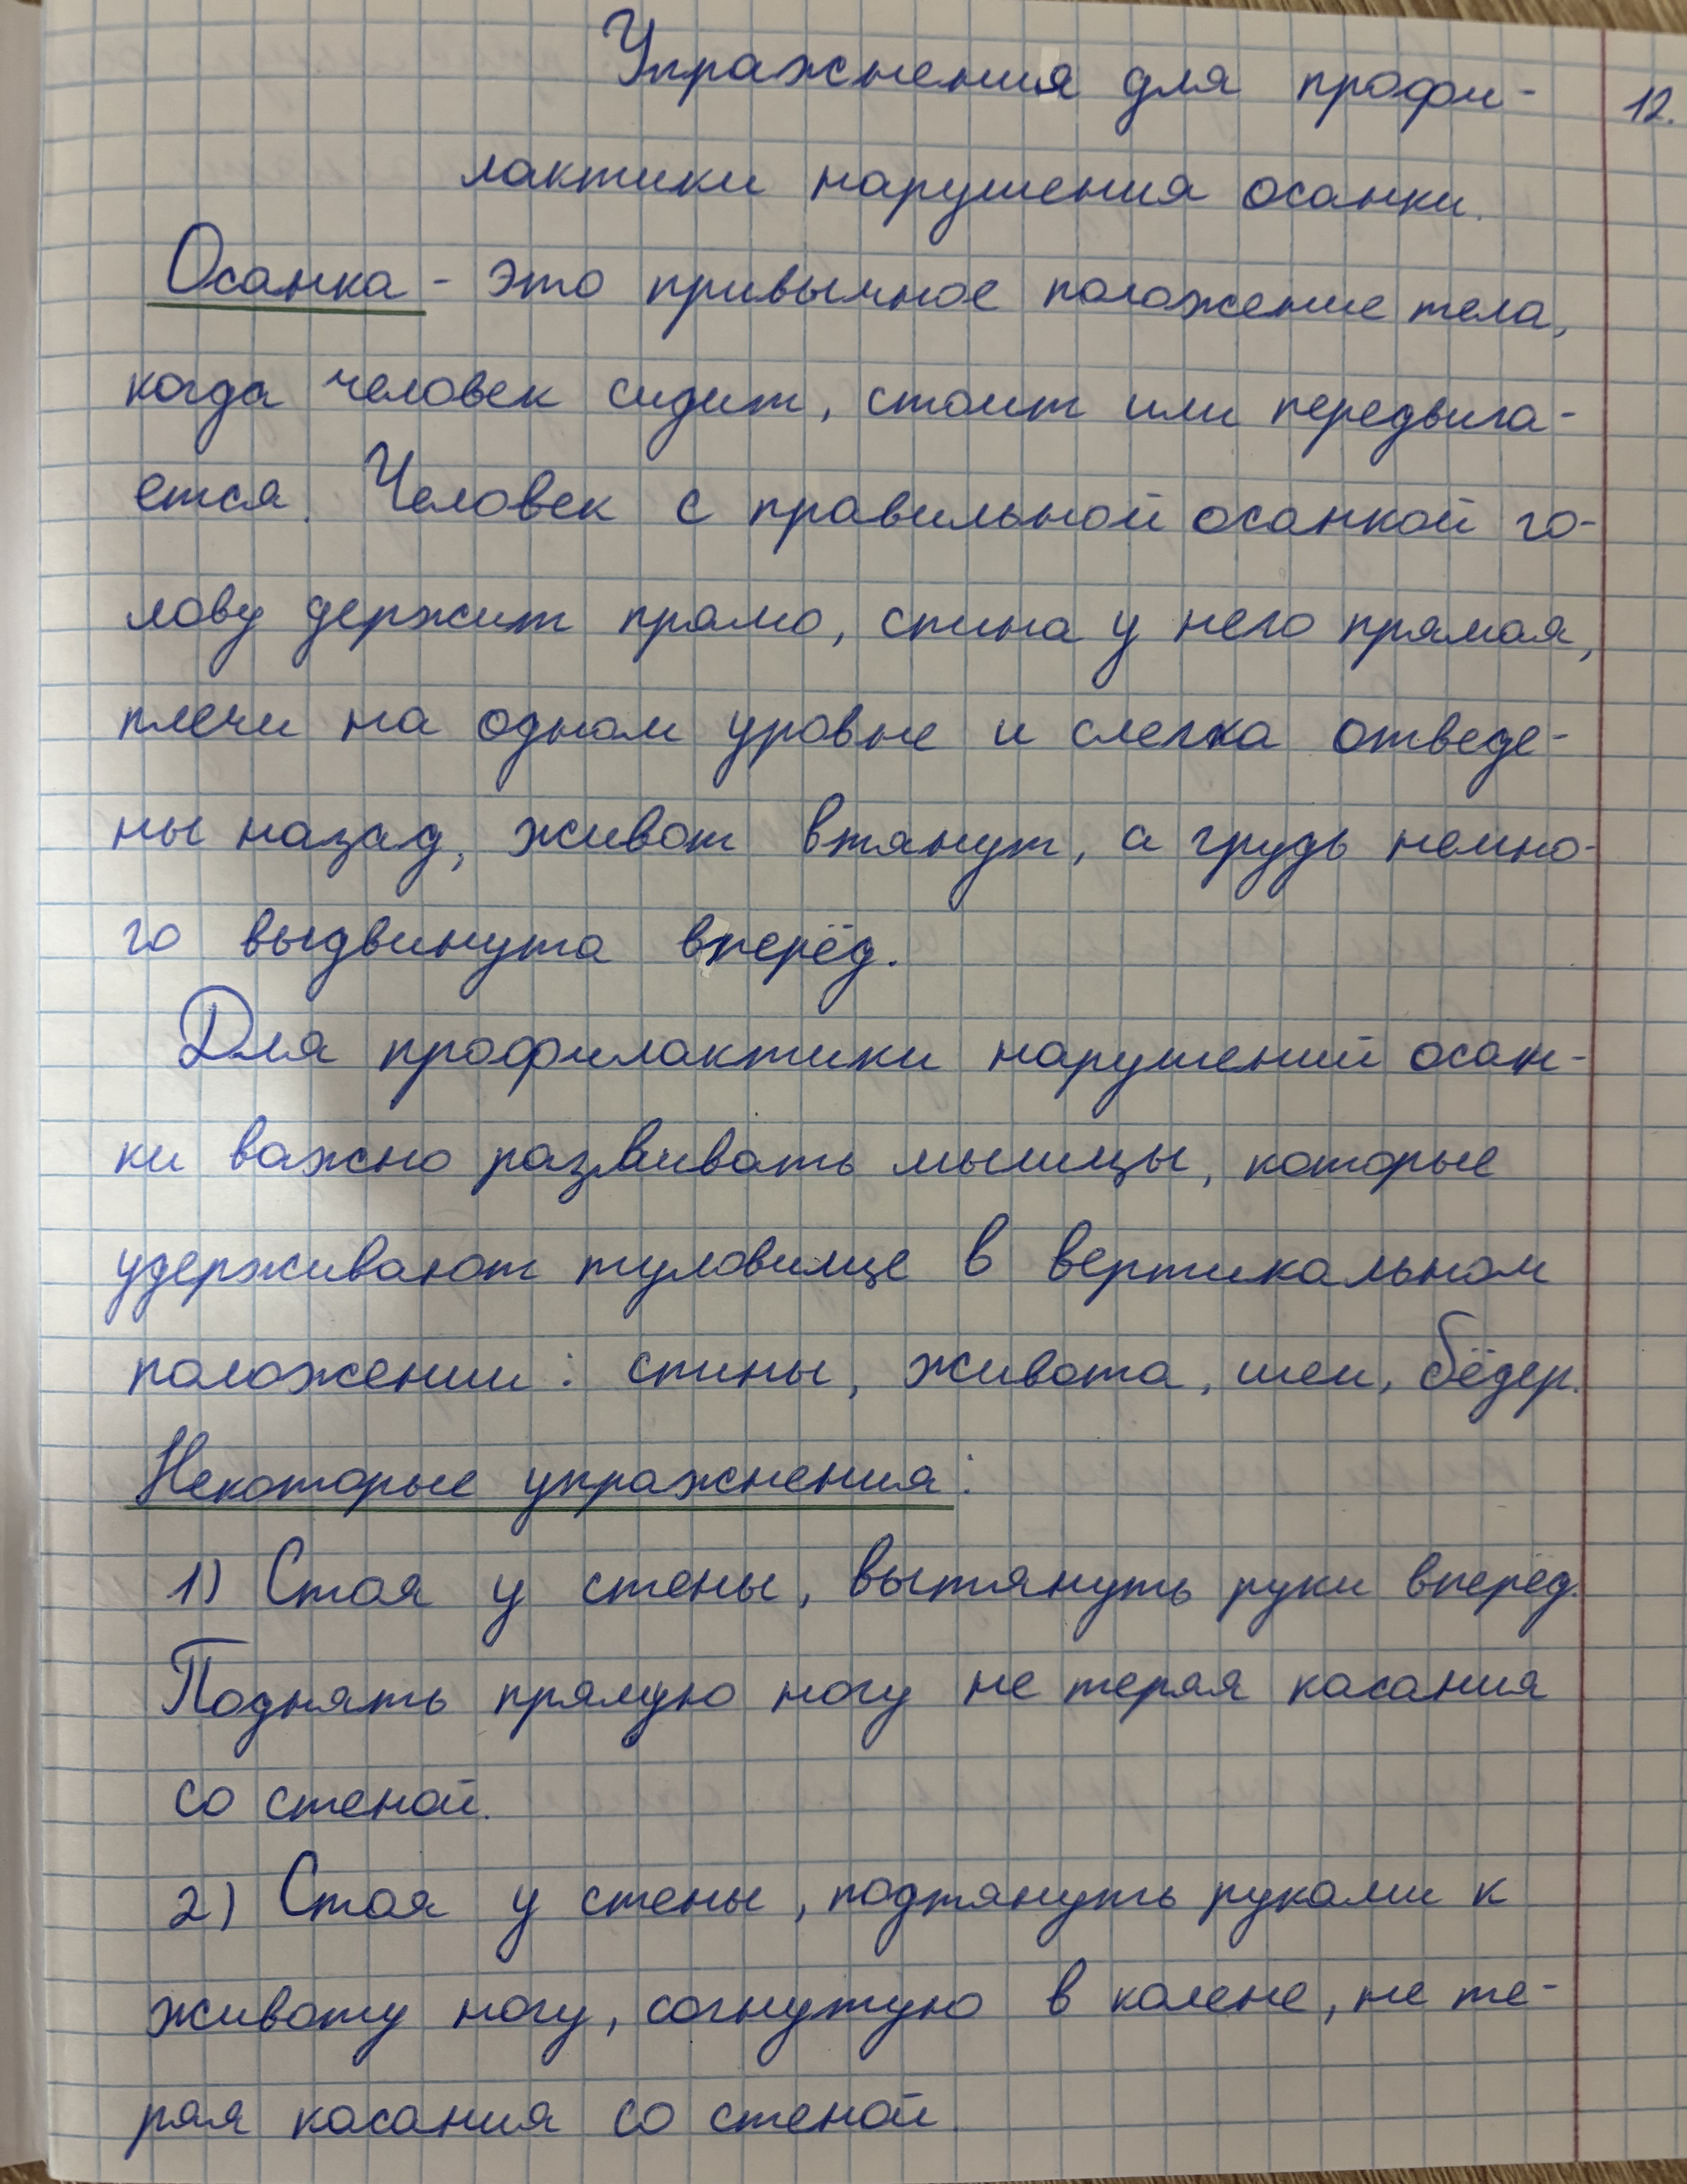 Упражнения для профи-
12.
лактики нарушения осанки.
Осанка - это привычное положение тела,
когда человек сидит, стоит или передвига-
ется. Человек с правильной осанкой го-
лову держит прямо, спина у него прямая,
плечи на одном уровне и слегка отведе-
ны назад, живот втянут, а грудь немно-
го выдвинута вперёд.
Для профилактики нарушений осан-
ки важно развивать мышцы, которые
удерживают туловище в вертикальном
положении: спины, живота, шеи, бёдер.
Некоторые упражнения:
1) Стоя у стены, вытянуть руки вперёд.
Поднять прямую ногу не теряя касания
со стеной.
2) Стоя у стены, подтянуть руками к
животу ногу, согнутую в колене, не те-
ряя касания со стеной.